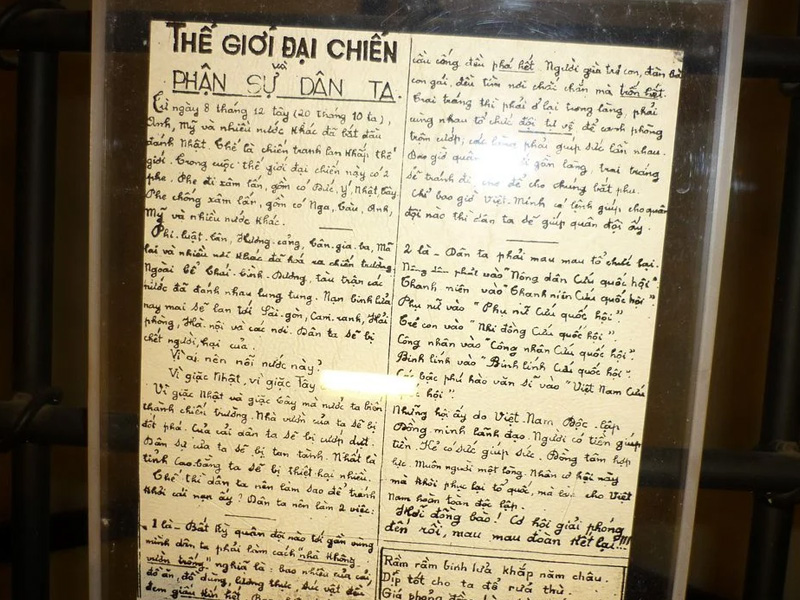 THẾ GIỚI ĐẠI CHIẾN
VÀ
PHẬN SỰ DÂN TA.
Từ ngày 8 tháng 12 tây (20 tháng 10 ta),
Anh, Mỹ và nhiều nước khác đã bắt đầu
đánh Nhật. Thế là chiến tranh lan khắp thế
giới. Trong cuộc thế giới đại chiến này có 2
phe. Phe đi xâm lấn, gồm có Đức, Ý, Nhật, Tây
Phe chống xâm lấn, gồm có Nga, Tàu, Anh,
Mỹ và nhiều nước khác.
Phi-luật-tân, Hương-cảng, Tân-gia-ba, Mã
lai và nhiều nơi khác đã hoá ra chiến trường.
Ngoài bể Thái-bình-Dương, tàu trận các
nước đã đánh nhau lung tung. Nạn binh lửa
nay mai sẽ lan tới Sài-gòn, Cam-ranh, Hải
phòng, Hà-nội và các nơi. Dân ta sẽ bị
chết người, hại của.
Vì ai nên nỗi nước này?
Vì giặc Nhật, vì giặc Tây
Vì giặc Nhật và giặc Tây mà nước ta biến
thành chiến trường. Nhà vườn của ta sẽ bị
đốt phá. Của cải dân ta sẽ bị cướp dựt.
Dân sự của ta sẽ bị tan tành. Nhất là
tỉnh Cao-bằng ta sẽ bị thiệt hại nhiều.
Thế thì dân ta nên làm sao để tránh
khỏi cái nạn ấy? Dân ta nên làm 2 việc:
1 là – Bất kỳ quân đội nào tới gần vùng
mình dân ta phải làm cách "nhà không
vườn trống" nghĩa là: bao nhiêu của cải,
đồ ăn, đồ dùng, lương thực, súc vật đều
đem giấu kín hết.
cầu cống đều phá hết. Người già trẻ con, đàn bà
con gái, đều tìm nơi chắc chắn mà trốn biệt.
Trai tráng thì phải ở lại trong làng, phải
cùng nhau tổ chức đội tự vệ để canh phòng
trộm cướp, các làng phải giúp sức lẫn nhau.
Bao giờ quân gần làng, trai tráng
sẽ tránh đi, để cho chúng bắt phu.
Chỉ bao giờ Việt-Minh có lệnh giúp cho quân
đội nào thì dân ta sẽ giúp quân đội ấy.
2 là – Dân ta phải mau mau tổ chức lại.
Nông dân phải vào "Nông dân Cứu quốc hội"
Thanh niên vào "Thanh niên Cứu quốc hội"
Phụ nữ vào "Phụ nữ Cứu quốc hội"
Trẻ con vào "Nhi đồng Cứu quốc hội"
Công nhân vào "Công nhân Cứu quốc hội".
Binh lính vào "Binh lính Cứu quốc hội".
Các bậc phú hào văn sĩ vào "Việt Nam Cứu
hội".
Những hội ấy do Việt-Nam Độc-lập
Đồng minh lãnh đạo. Người có tiền giúp
tiền. Kẻ có sức giúp sức. Đồng tâm hợp
lực. Muôn người một lòng. Nhân cơ hội này
mà khôi phục lại tổ quốc, mà làm cho Việt
Nam hoàn toàn độc lập.
Hỡi đồng bào! Cơ hội giải phóng
đến rồi, mau mau đoàn kết lại...!!!
Rầm rầm binh lửa khắp năm châu.
Dịp tốt cho ta để rửa thù.